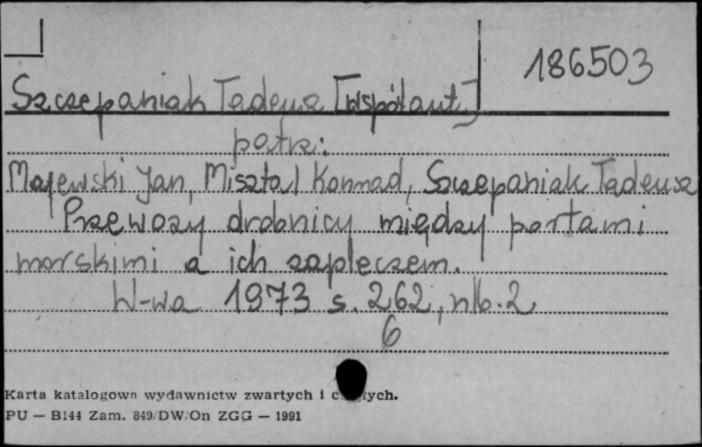 186503
Szczepaniak Tadeusz [współaut.]
patrz:
Majewski Jan, Misztal Konrad, Szczepaniak Tadeusz
Przewozy drobnicy między portami
morskimi a ich zapleczem.
W-wa 1973 s. 262, nlb. 2
6
Karta katalogowa wydawnictw zwartych i
PU — B144 Zam. 849/DW/On ZGG — 1991